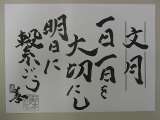 文月
一日一日を
大切にし
明日に
繋ごう